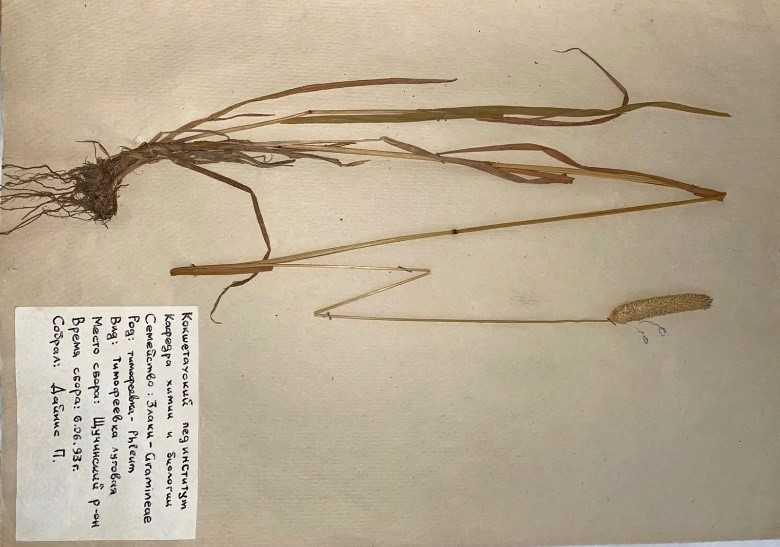 Кокшетауский пединститут
Кафедра химии и биологии
Семейство: Злаки - Gramineae
Род: тимофеевка - Phleum
Вид: Тимофеевка луговая
Место сбора: Щучинский р-он
Время сбора: 6.06.93г.
Собрал: Дайнис П.